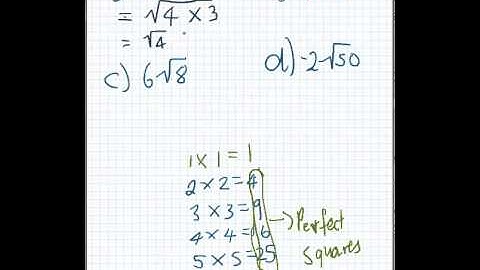 = √4 × 3
= √4 ·
c) 6√8
d) -2√50
1 × 1 = 1
2 × 2 = 4
3 × 3 = 9
4 × 4 = 16
5 × 5 = 25
→ Perfect
squares